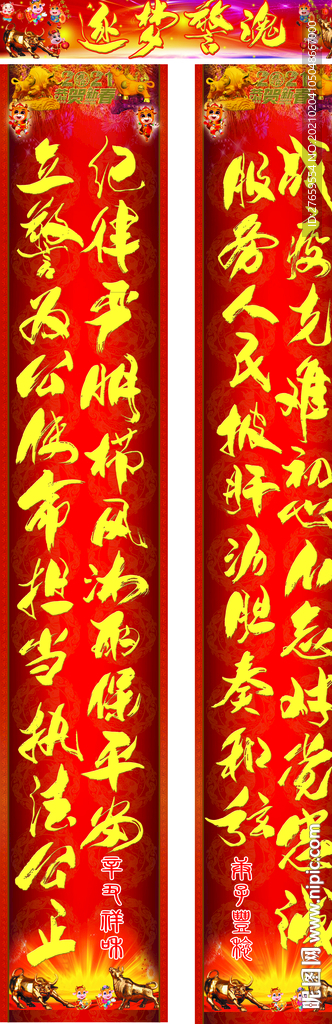 逐梦警魂
2021
恭贺新春
2021
恭贺新春
战疫克难初心不忘对党忠诚
服务人民披肝沥胆奏和弦
庚子豐稔
纪律严明栉风沐雨保平安
立警为公使命担当执法公正
辛丑祥和
昵图网 www.nipic.com